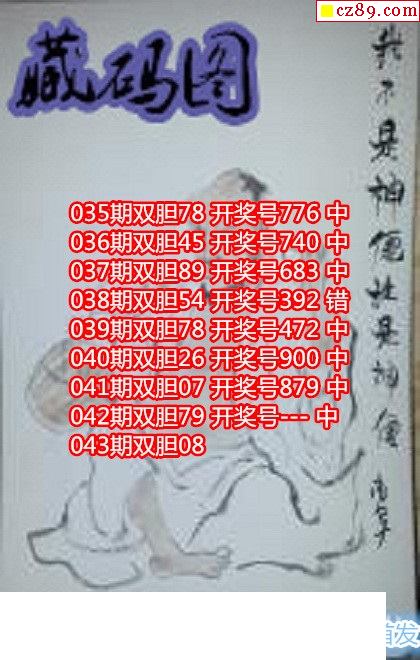 cz89.com
藏码图
035期双胆78 开奖号776 中
036期双胆45 开奖号740 中
037期双胆89 开奖号683 中
038期双胆54 开奖号392 错
039期双胆78 开奖号472 中
040期双胆26 开奖号900 中
041期双胆07 开奖号879 中
042期双胆79 开奖号--- 中
043期双胆08
我不是神仙
是神仙
首发